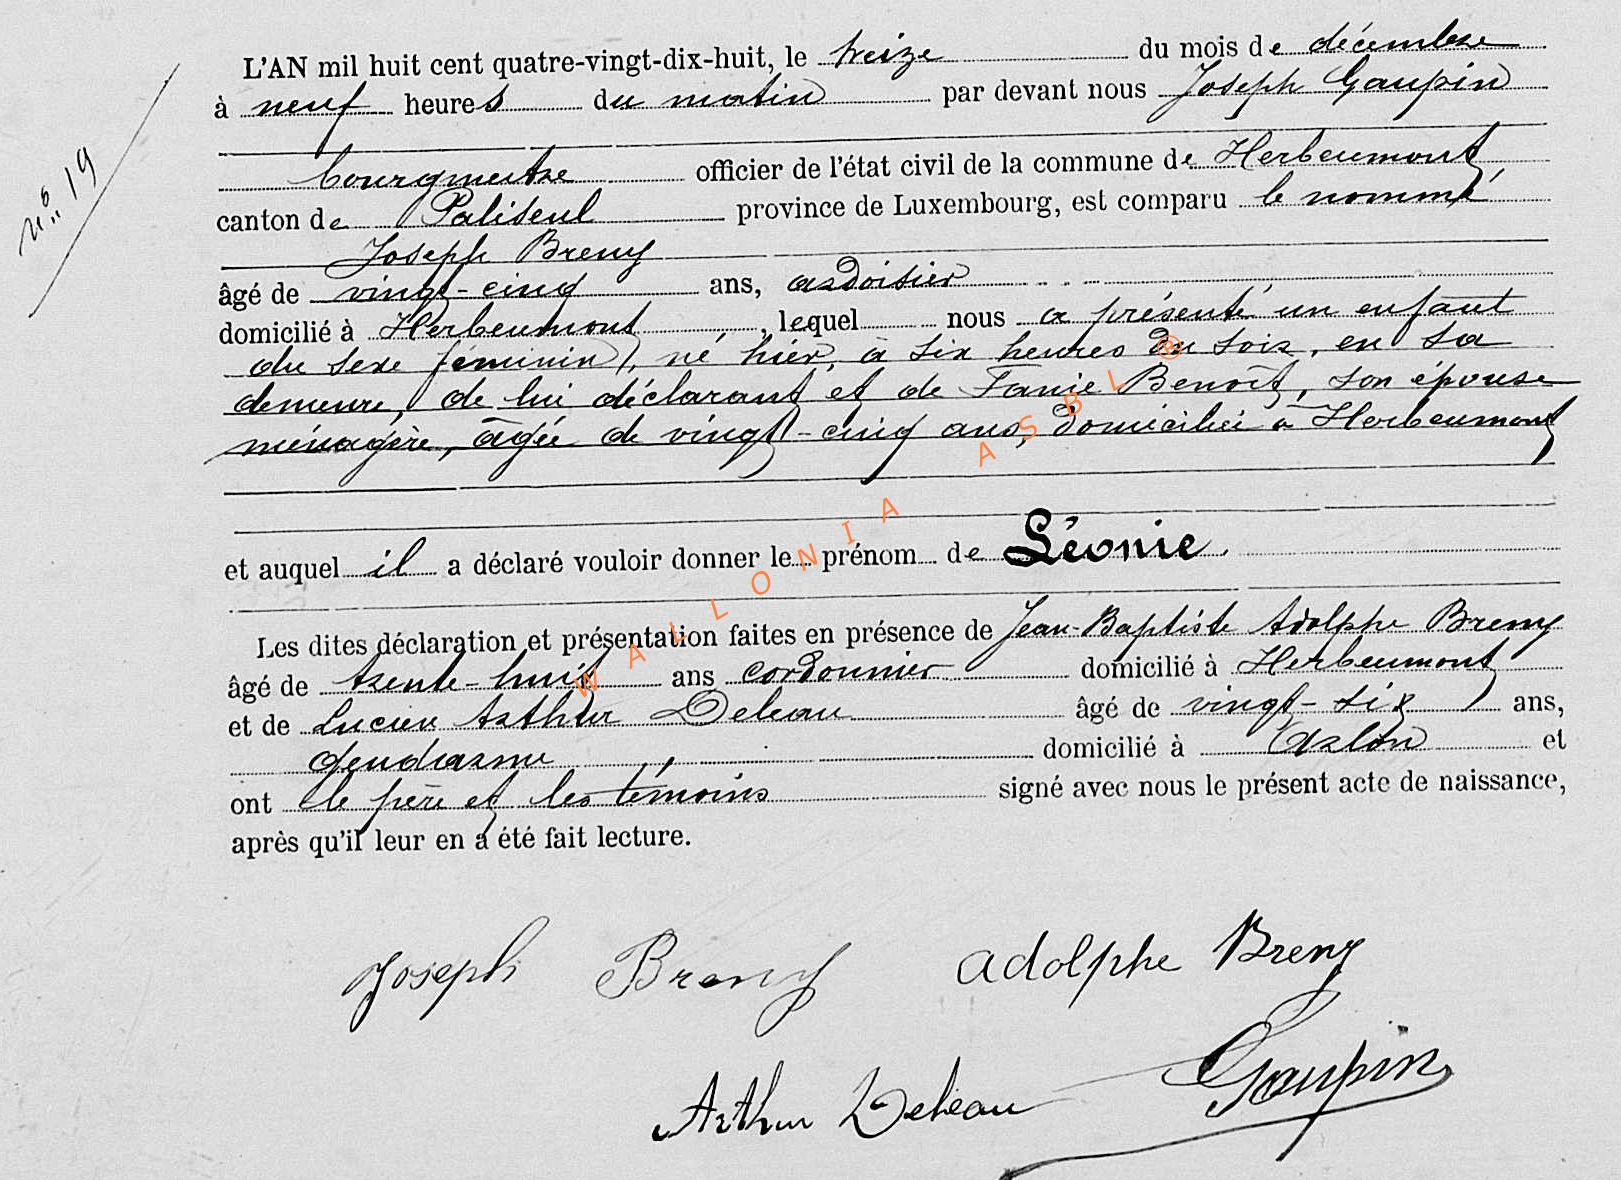 L'AN mil huit cent quatre-vingt-dix-huit, le treize du mois de décembre
à neuf heures du matin par devant nous Joseph Gaupin
bourgmestre officier de l'état civil de la commune de Herbeumont,
canton de Paliseul province de Luxembourg, est comparu le nommé
Joseph Breny
âgé de vingt-cinq ans, ardoisier
domicilié à Herbeumont, lequel nous a présenté un enfant
du sexe féminin, né hier, à six heures du soir, en sa
demeure, de lui déclarant et de Fanie Benoît, son épouse
ménagère, âgée de vingt-cinq ans, domiciliée à Herbeumont
et auquel il a déclaré vouloir donner le prénom de Léonie.
Les dites déclaration et présentation faites en présence de Jean-Baptiste Adolphe Breny
âgé de trente-huit ans cordonnier domicilié à Herbeumont
et de Lucien Arthur Deleau âgé de vingt-six ans,
gendarme domicilié à Arlon et
ont le père et les témoins signé avec nous le présent acte de naissance,
après qu'il leur en a été fait lecture.
N° 19
Joseph Breny Adolphe Breny
Arthur Deleau Gaupin
WALLONIA ASBL ®